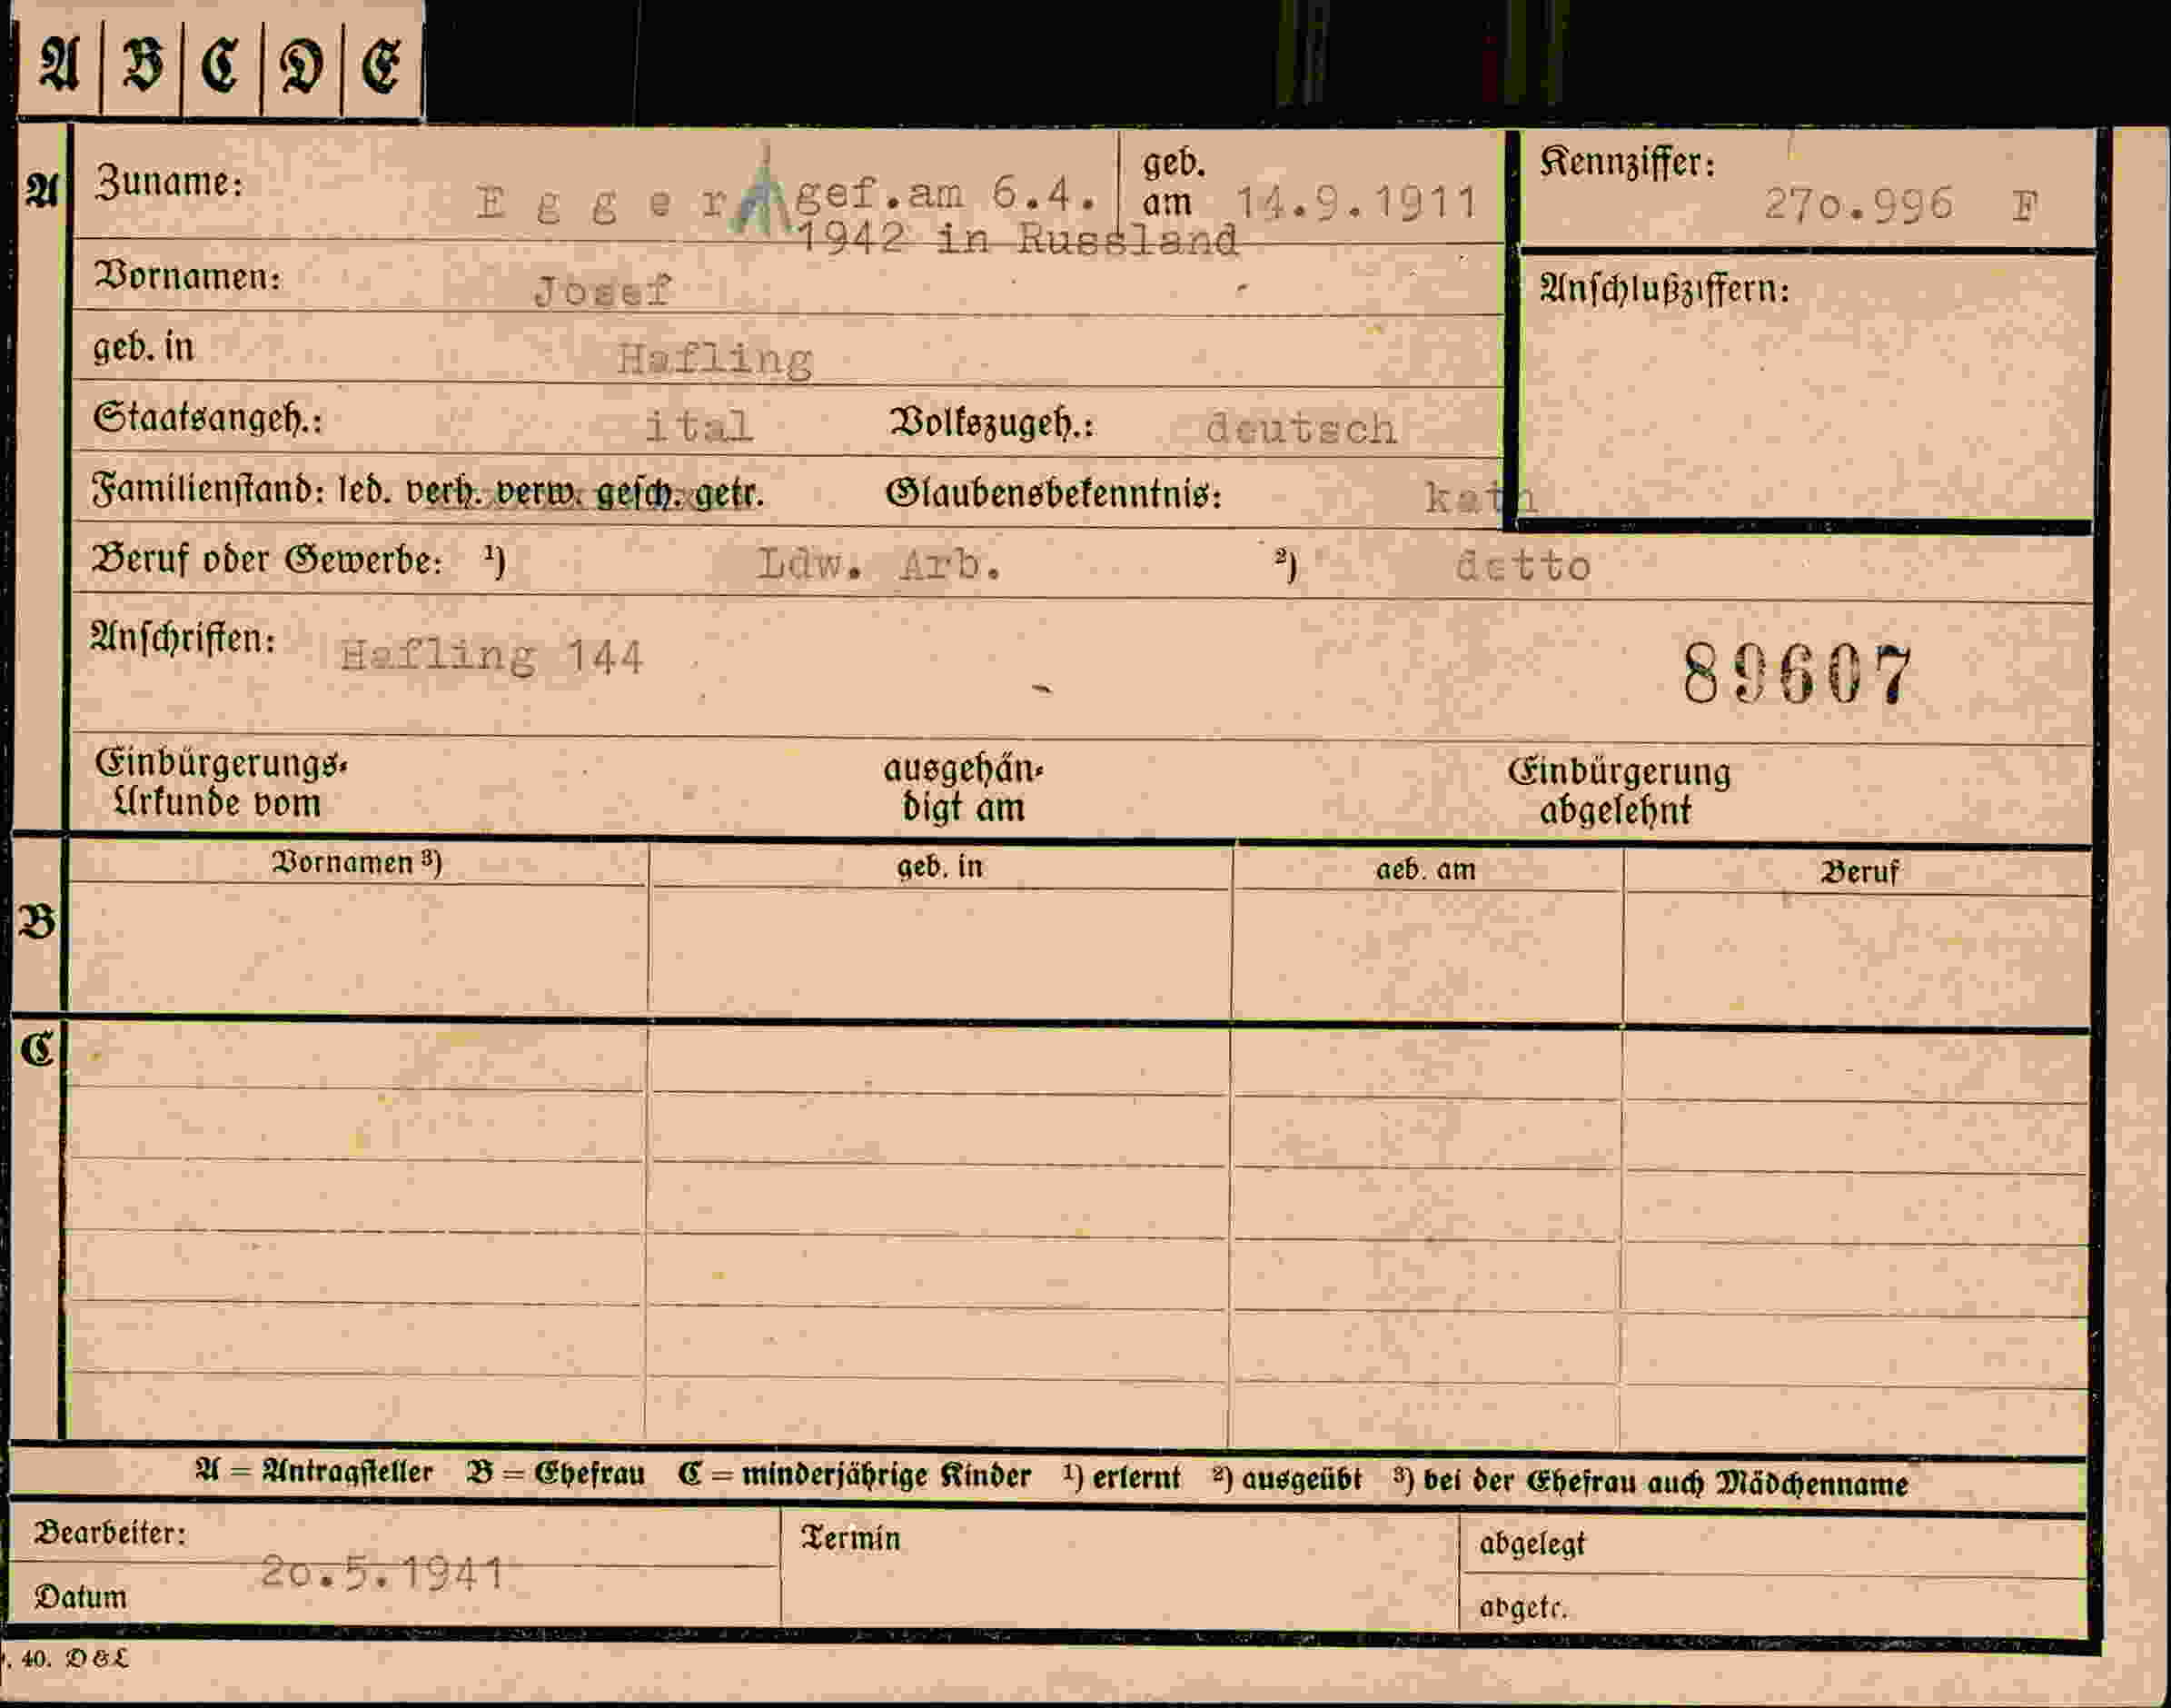 A B C D E
A Zuname: E g g e r gef.am 6.4. geb. am 14.9.1911 Kennziffer: 27o.996 F
1942 in Russland
Vornamen: Josef Anschlußziffern:
geb. in Hafling
Staatsangeh.: ital Volkszugeh.: deutsch
Familienstand: led. verh. verw. gesch. getr. Glaubensbekenntnis: kath
Beruf oder Gewerbe: ¹) Ldw. Arb. ²) detto
Anschriften: Hafling 144 89607
Einbürgerungs- ausgehän- Einbürgerung
Urkunde vom digt am abgelehnt
Vornamen ³) geb. in geb. am Beruf
B
C
A = Antragsteller B = Ehefrau C = minderjährige Kinder ¹) erlernt ²) ausgeübt ³) bei der Ehefrau auch Mädchenname
Bearbeiter: Termin abgelegt
2o.5.1941
Datum abgetr.
. 40. D & L